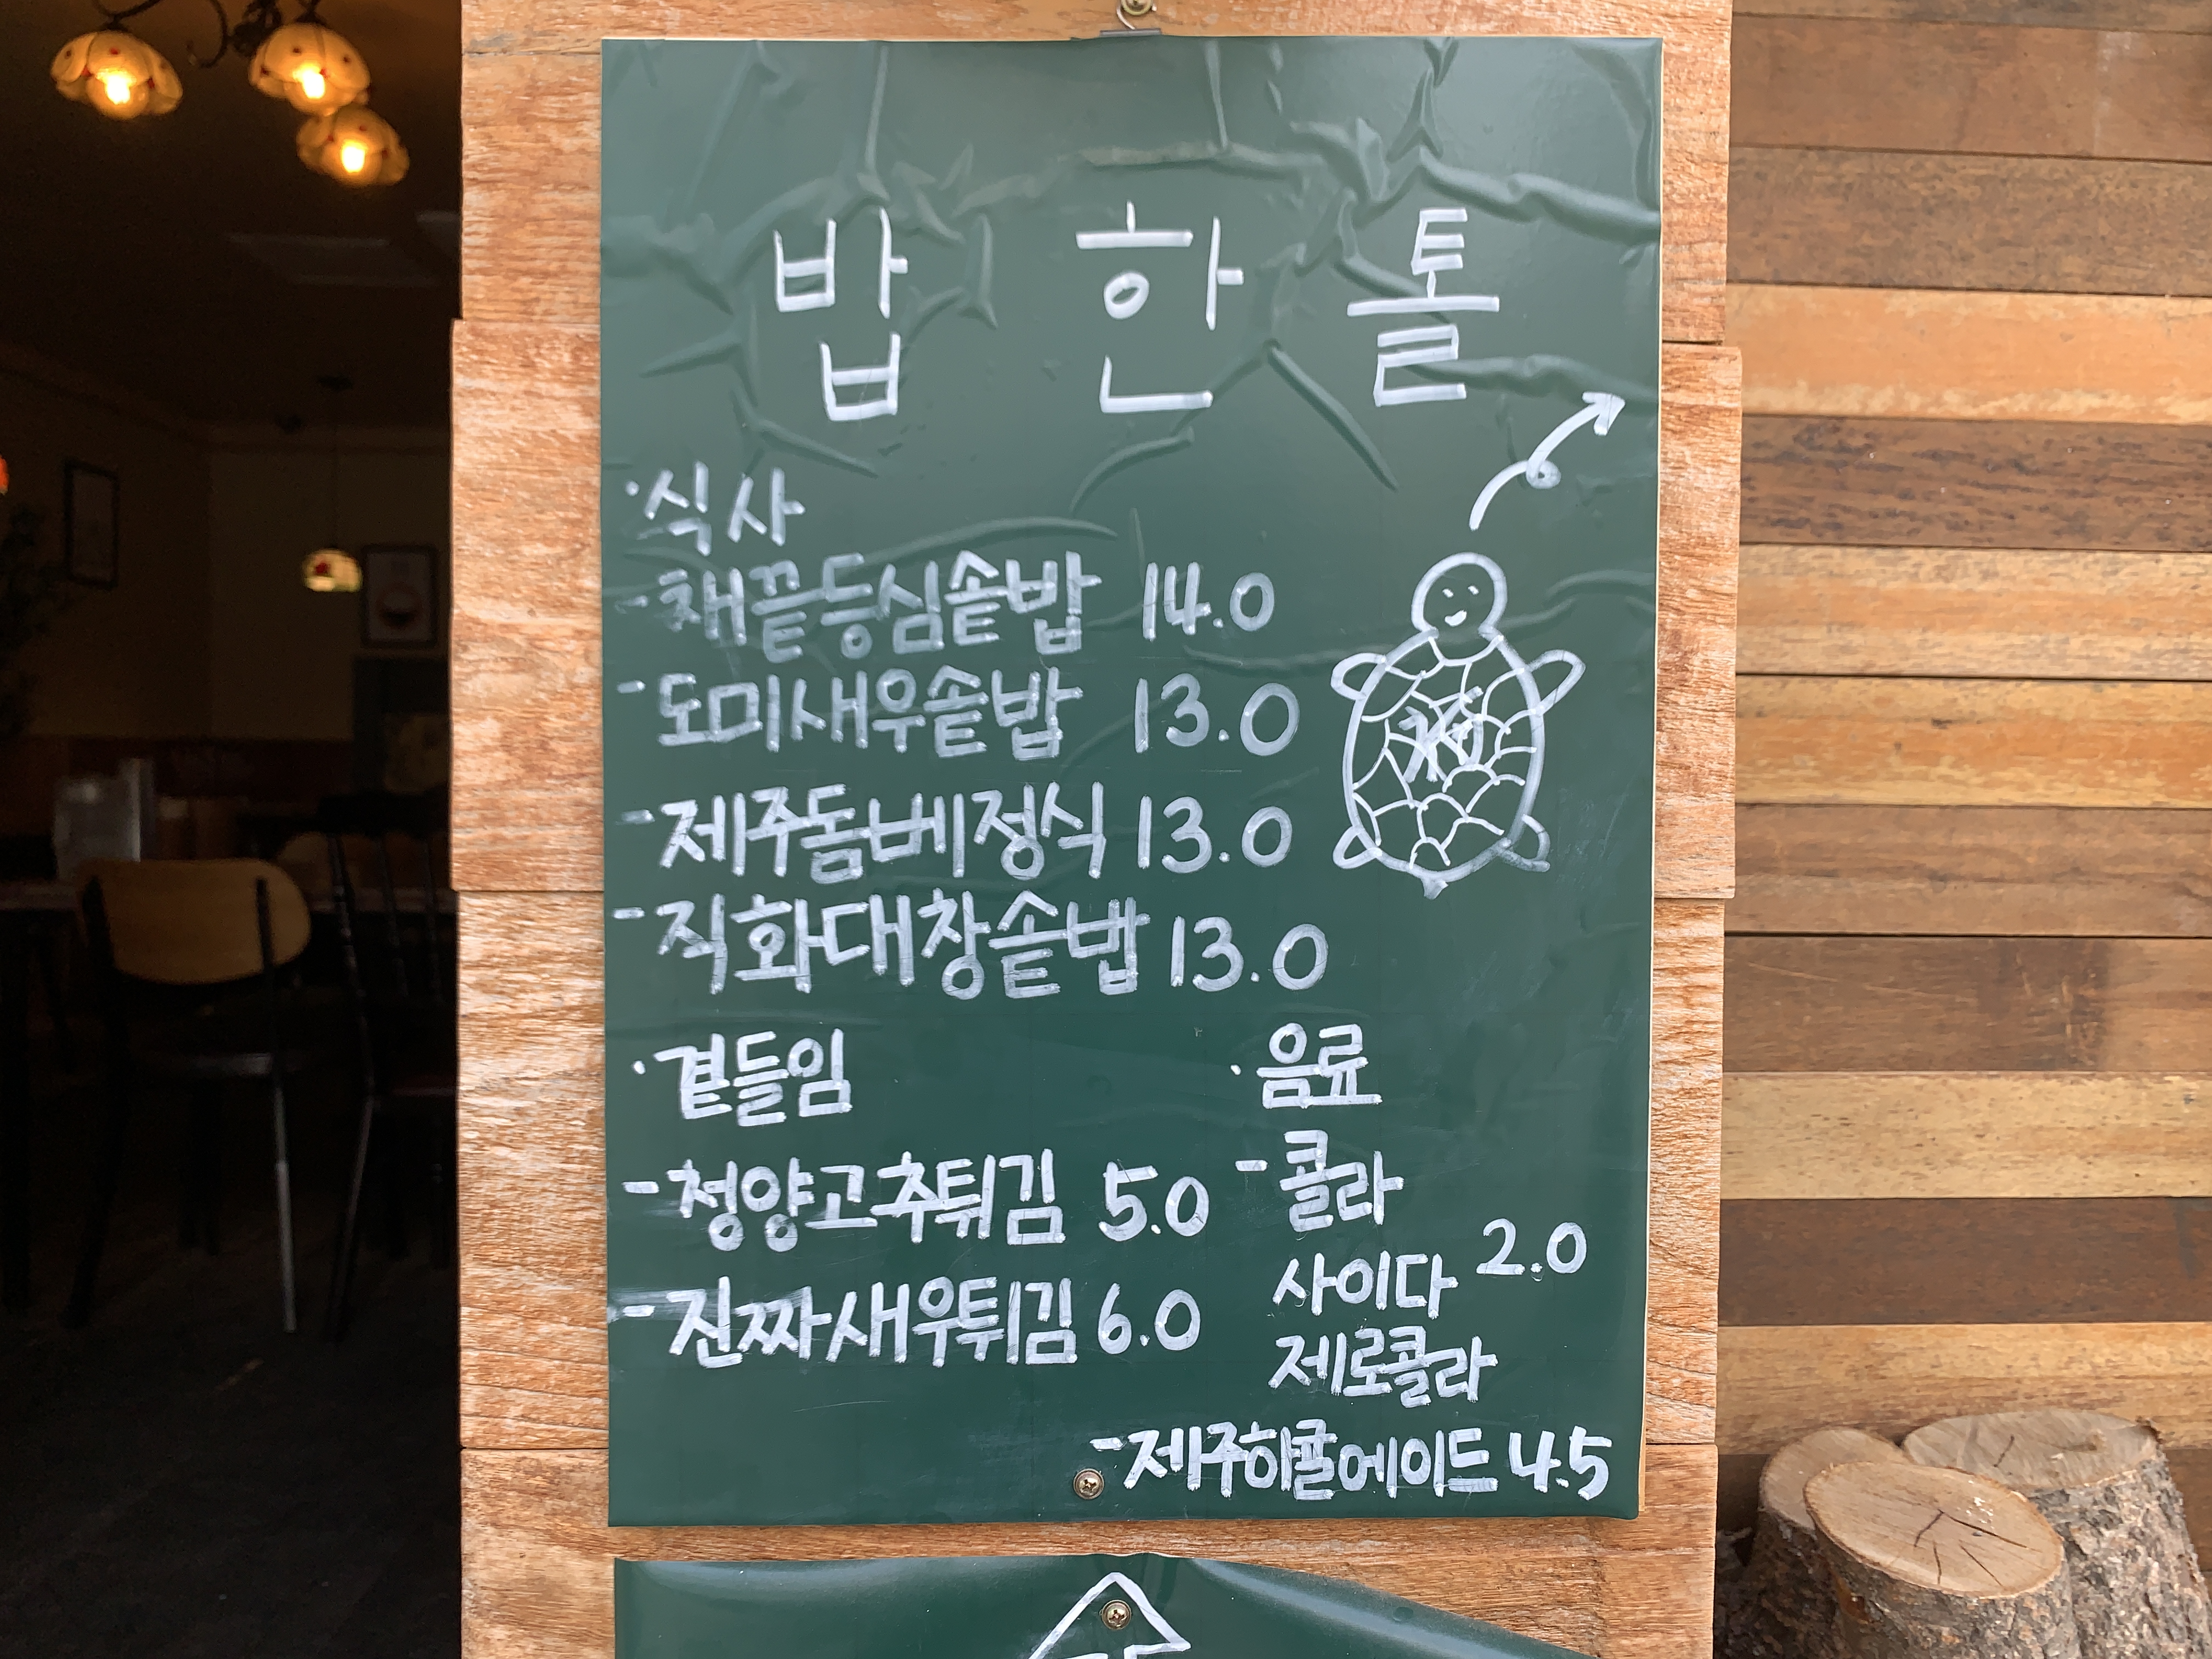 밥 한 톨
·식사
-채끝등심솥밥 14.0
-도미새우솥밥 13.0
-제주돔베정식 13.0
-직화대창솥밥 13.0
·곁들임
-청양고추튀김 5.0
-진짜새우튀김 6.0
·음료
-콜라
사이다 2.0
제로콜라
-제주하귤에이드 4.5